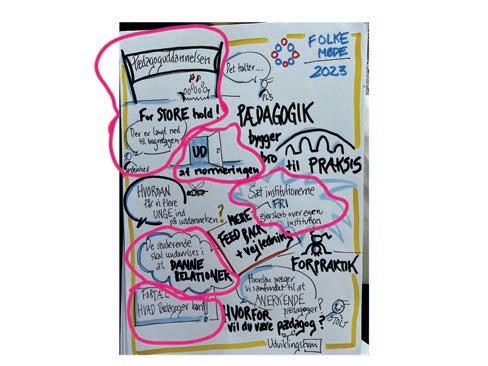 Pædagoguddannelsen
FOLKE
MØDE
2023
Det halter...
For STORE hold!
PÆDAGOGIK
bygger
bro
til PRAKSIS
Der er langt ned
til bageren
UD
af normeringen
HVORDAN
får vi flere
UNGE ind
på uddannelsen?
Sæt institutionerne
FRI
ejerskab over egen
institution
MERE
FEED BACK
+ vejledning
De studerende
skal undervises i
at DANNE
RELATIONER
FORPRAKTIK
FORTÆL
HVAD Pædagoger kan!
Hvordan præger
vi samfundet til at
ANERKENDE
pædagoger?
STOLT
HVORFOR
vil du være pædagog?
Udviklingsrum